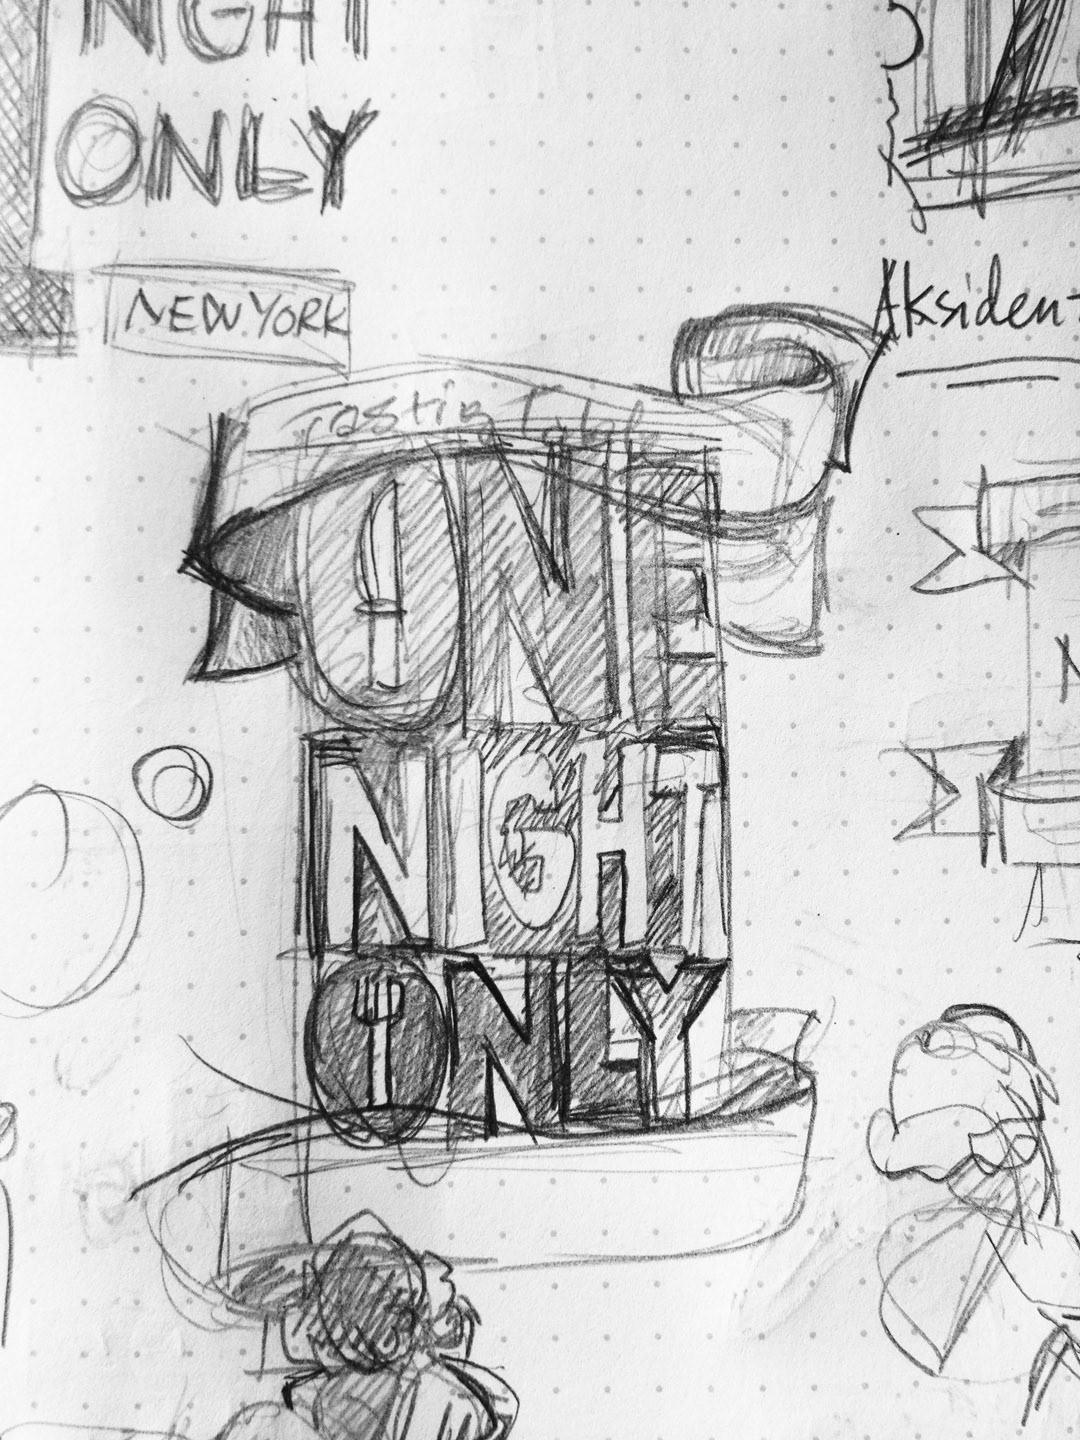 NGHT
ONLY
NEW YORK
Aksiden
Tasting Table
ONE
NIGHT
ONLY